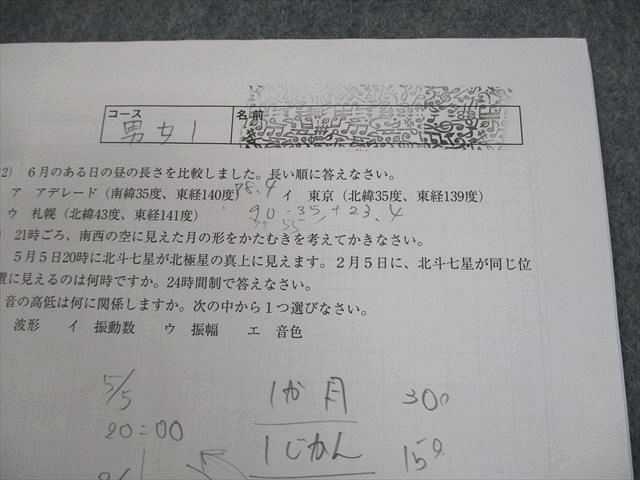 コース 名前
男女1
2) 6月のある日の昼の長さを比較しました。長い順に答えなさい。
ア アデレード(南緯35度、東経140度) 78.4 イ 東京(北緯35度、東経139度)
ウ 札幌(北緯43度、東経141度) 90-35+23.4
55
21時ごろ、南西の空に見えた月の形をかたむきを考えてかきなさい。
5月5日20時に北斗七星が北極星の真上に見えます。2月5日に、北斗七星が同じ位
置に見えるのは何時ですか。24時間制で答えなさい。
音の高低は何に関係しますか。次の中から1つ選びなさい。
波形 イ 振動数 ウ 振幅 エ 音色
5/5 1か月 300
20:00 1じかん 150